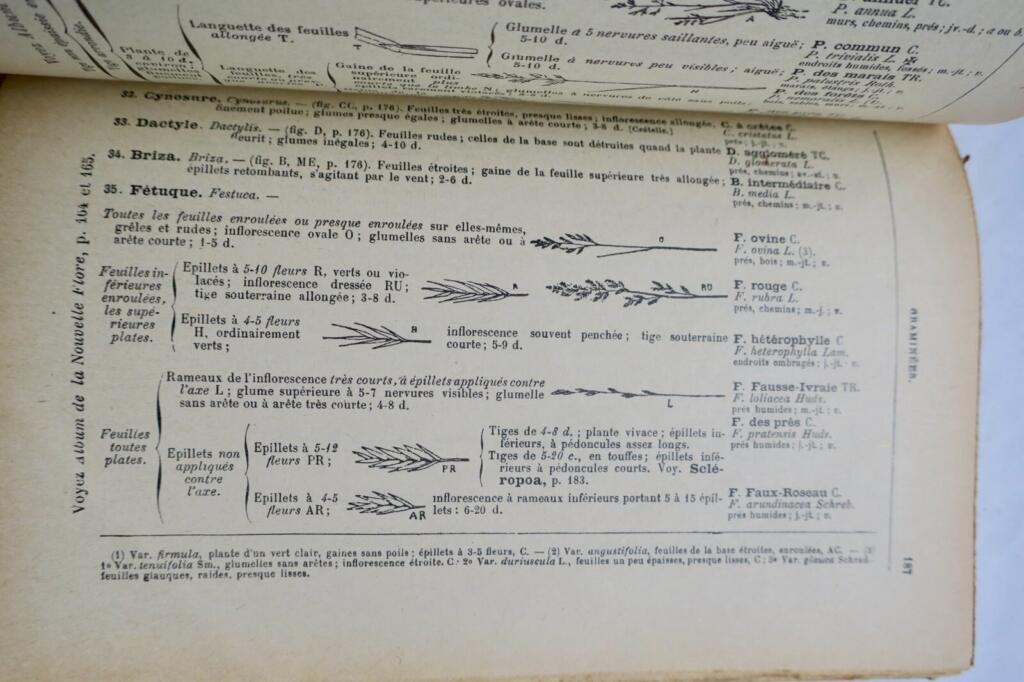 Languette des feuilles
allongée T.
T
Glumelle à 5 nervures saillantes, peu aiguë;
5-10 d.
Glumelle à nervures peu visibles; aiguë;
5-10 d.
A
P. annua L.
murs, chemins, prés; jr.-d.; a ou b.
P. commun C.
P. trivialis L.
endroits humides, fossés; m.-jt.; v.
P. des marais TR.
Plante de
3 à 10 d.
Languette des
Gaine de la feuille
32. Cynosure. Cynosurus. — (fig. CC, p. 176). Feuilles très étroites, presque lisses; inflorescence allongée,
finement poilue; glumes presque égales; glumelles à arête courte; 3-8 d. (Crételle.)
C. à crêtes C.
C. cristatus L.
33. Dactyle. Dactylis. — (fig. D, p. 176). Feuilles rudes; celles de la base sont détruites quand la plante
fleurit; glumes inégales; 4-10 d.
D. aggloméré TC.
D. glomerata L.
34. Briza. Briza. — (fig. B, ME, p. 176). Feuilles étroites; gaine de la feuille supérieure très allongée;
épillets retombants, s'agitant par le vent; 2-6 d.
B. intermédiaire C.
B. media L.
prés, chemins; m.-jt.; v.
35. Fétuque. Festuca. —
Toutes les feuilles enroulées ou presque enroulées sur elles-mêmes,
grêles et rudes; inflorescence ovale O; glumelles sans arête ou à
arête courte; 1-5 d.
O
F. ovine C.
F. ovina L. (3).
prés, bois; m.-jt.; v.
Feuilles in-
férieures
enroulées,
les supé-
rieures
plates.
Epillets à 5-10 fleurs R, verts ou vio-
lacés; inflorescence dressée RU;
tige souterraine allongée; 3-8 d.
R
RU
F. rouge C.
F. rubra L.
prés, chemins; m.-jt.; v.
Epillets à 4-5 fleurs
H, ordinairement
verts;
H
inflorescence souvent penchée; tige souterraine
courte; 5-9 d.
F. hétérophylle C
F. heterophylla Lam.
endroits ombragés; j.-jt.; v.
Feuilles
toutes
plates.
Rameaux de l'inflorescence très courts, à épillets appliqués contre
l'axe L; glume supérieure à 5-7 nervures visibles; glumelle
sans arête ou à arête très courte; 4-8 d.
L
F. Fausse-Ivraie TR.
F. loliacea Huds.
prés humides; m.-jt.; v.
Epillets non
appliqués
contre
l'axe.
Epillets à 5-12
fleurs PR;
PR
Tiges de 4-8 d.; plante vivace; épillets in-
férieurs, à pédoncules assez longs.
Tiges de 5-20 c., en touffes; épillets infé-
rieurs à pédoncules courts. Voy. Sclé-
ropoa, p. 183.
F. des prés C.
F. pratensis Huds.
prés humides; j.-jt.; v.
Epillets à 4-5
fleurs AR;
AR
inflorescence à rameaux inférieurs portant 5 à 15 épil-
lets: 6-20 d.
F. Faux-Roseau C.
F. arundinacea Schreb.
prés humides; j.-jt.; v.
(1) Var. firmula, plante d'un vert clair, gaines sans poils; épillets à 3-5 fleurs, C. — (2) Var. angustifolia, feuilles de la base étroites, enroulées, AC. — (3)
1º Var. tenuifolia Sm., glumelles sans arêtes; inflorescence étroite. C. 2º Var. duriuscula L., feuilles un peu épaisses, presque lisses, C; 3º Var. glauca Schrad.
feuilles glauques, raides, presque lisses.
Voyez Album de la Nouvelle Flore, p. 164 et 165.
GRAMINÉES.
187